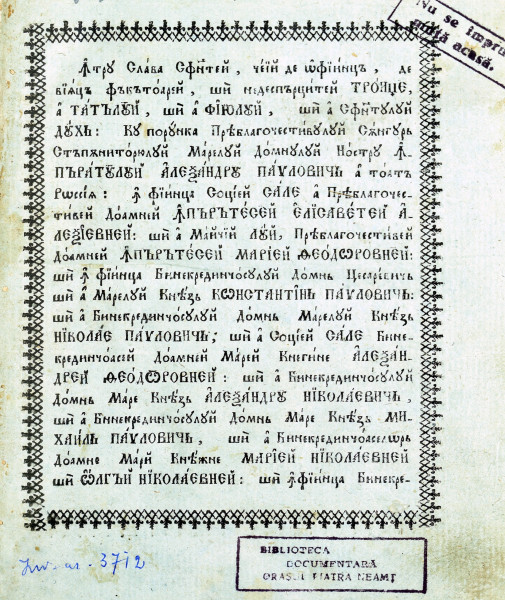 Nu se impru
mută acasă.
Ꙟтру Слава Сфи́нтей, че́їй де ѡ҆фїи́нцъ, де
вїа́цъ фъкътоа́рей, шѝ недеспърци́тей ТРО́ИЦЕ,
а҆ ТА́ТЪЛꙋЙ, шѝ а҆ ФЇ́ЮЛꙋЙ, шѝ а҆ Сфи́нтꙋлꙋй
Дꙋ́хь: Кꙋ пору́нка Пре́благочести́вꙋлꙋй Сѫ́нгꙋрь
Стъпѫнито́рюлꙋй Ма́релꙋй До́мнꙋлꙋй Но́стрꙋ Ꙟ҆
ПЪРА́ТꙋЛꙋЙ А҆ЛЕѮА́НДРꙋ ПА́ѴЛОВИЧЬ а҆ тоа́тъ
Рѡссїѧ: ꙟ҆ фїи́нца Соцїей СА́ЛЕ а҆ Пре́благочес-
ти́вей Доа́мней Ꙟ҆ПЪРЪТЕ́СЕЙ Е҆ЛИСАВЕ́ТЕЙ А҆-
ЛЕѮЇЕВНЕЙ: шѝ а҆ Ма́йчїй Лꙋ́й, Пре́благочести́вей
Доа́мней Ꙟ҆ПЪРЪТЕ́СЕЙ МАРЇ́ЕЙ ѲЕО́ДѠРОВНЕЙ:
шѝ ꙟ҆ фїи́нца Бинекрединчо́сꙋлꙋй Домнь Цесаре́вичь
шѝ а҆ Ма́релꙋй Кнѣ́зь КѠНСТАНТІ́НЬ ПА́ѴЛОВИЧЬ:
шѝ а҆ Бинекрединчо́сꙋлꙋй До́мнь Ма́релꙋй Кнѣ́зь
НЇКОЛА́Е ПА́ѴЛОВИЧЬ; шѝ а҆ Соцїей СА́ЛЕ Бине-
крединчоа́сїй Доа́мней Ма́рей Кнеги́не А҆ЛЕѮА́Н-
ДРЕЙ ѲЕО́ДѠРОВНЕЙ: шѝ а҆ Бинекрединчо́сꙋлꙋй
До́мнь Ма́ре Кнѣ́зь А҆ЛЕѮА́НДРꙋ НЇКОЛА́ЕВИЧЬ,
шѝ а҆ Бинекрединчо́сꙋлꙋй До́мнь Ма́ре Кнѣ́зь МИ-
ХАИ́ЛЬ ПА́ѴЛОВИЧЬ, шѝ а҆ Бинекрединчоа́селѡрь
Доа́мне Ма́рй Кнѣ́жне МАРЇ́ЕЙ НЇКОЛА́ЕВНЕЙ
шѝ Ѽ́ЛГЪЙ НЇКОЛА́ЕВНЕЙ: шѝ ꙟ҆ фїи́нца Бинекре-
Inv. nr. 3712
BIBLIOTECA
DOCUMENTARĂ
ORAȘUL PIATRA NEAMȚ